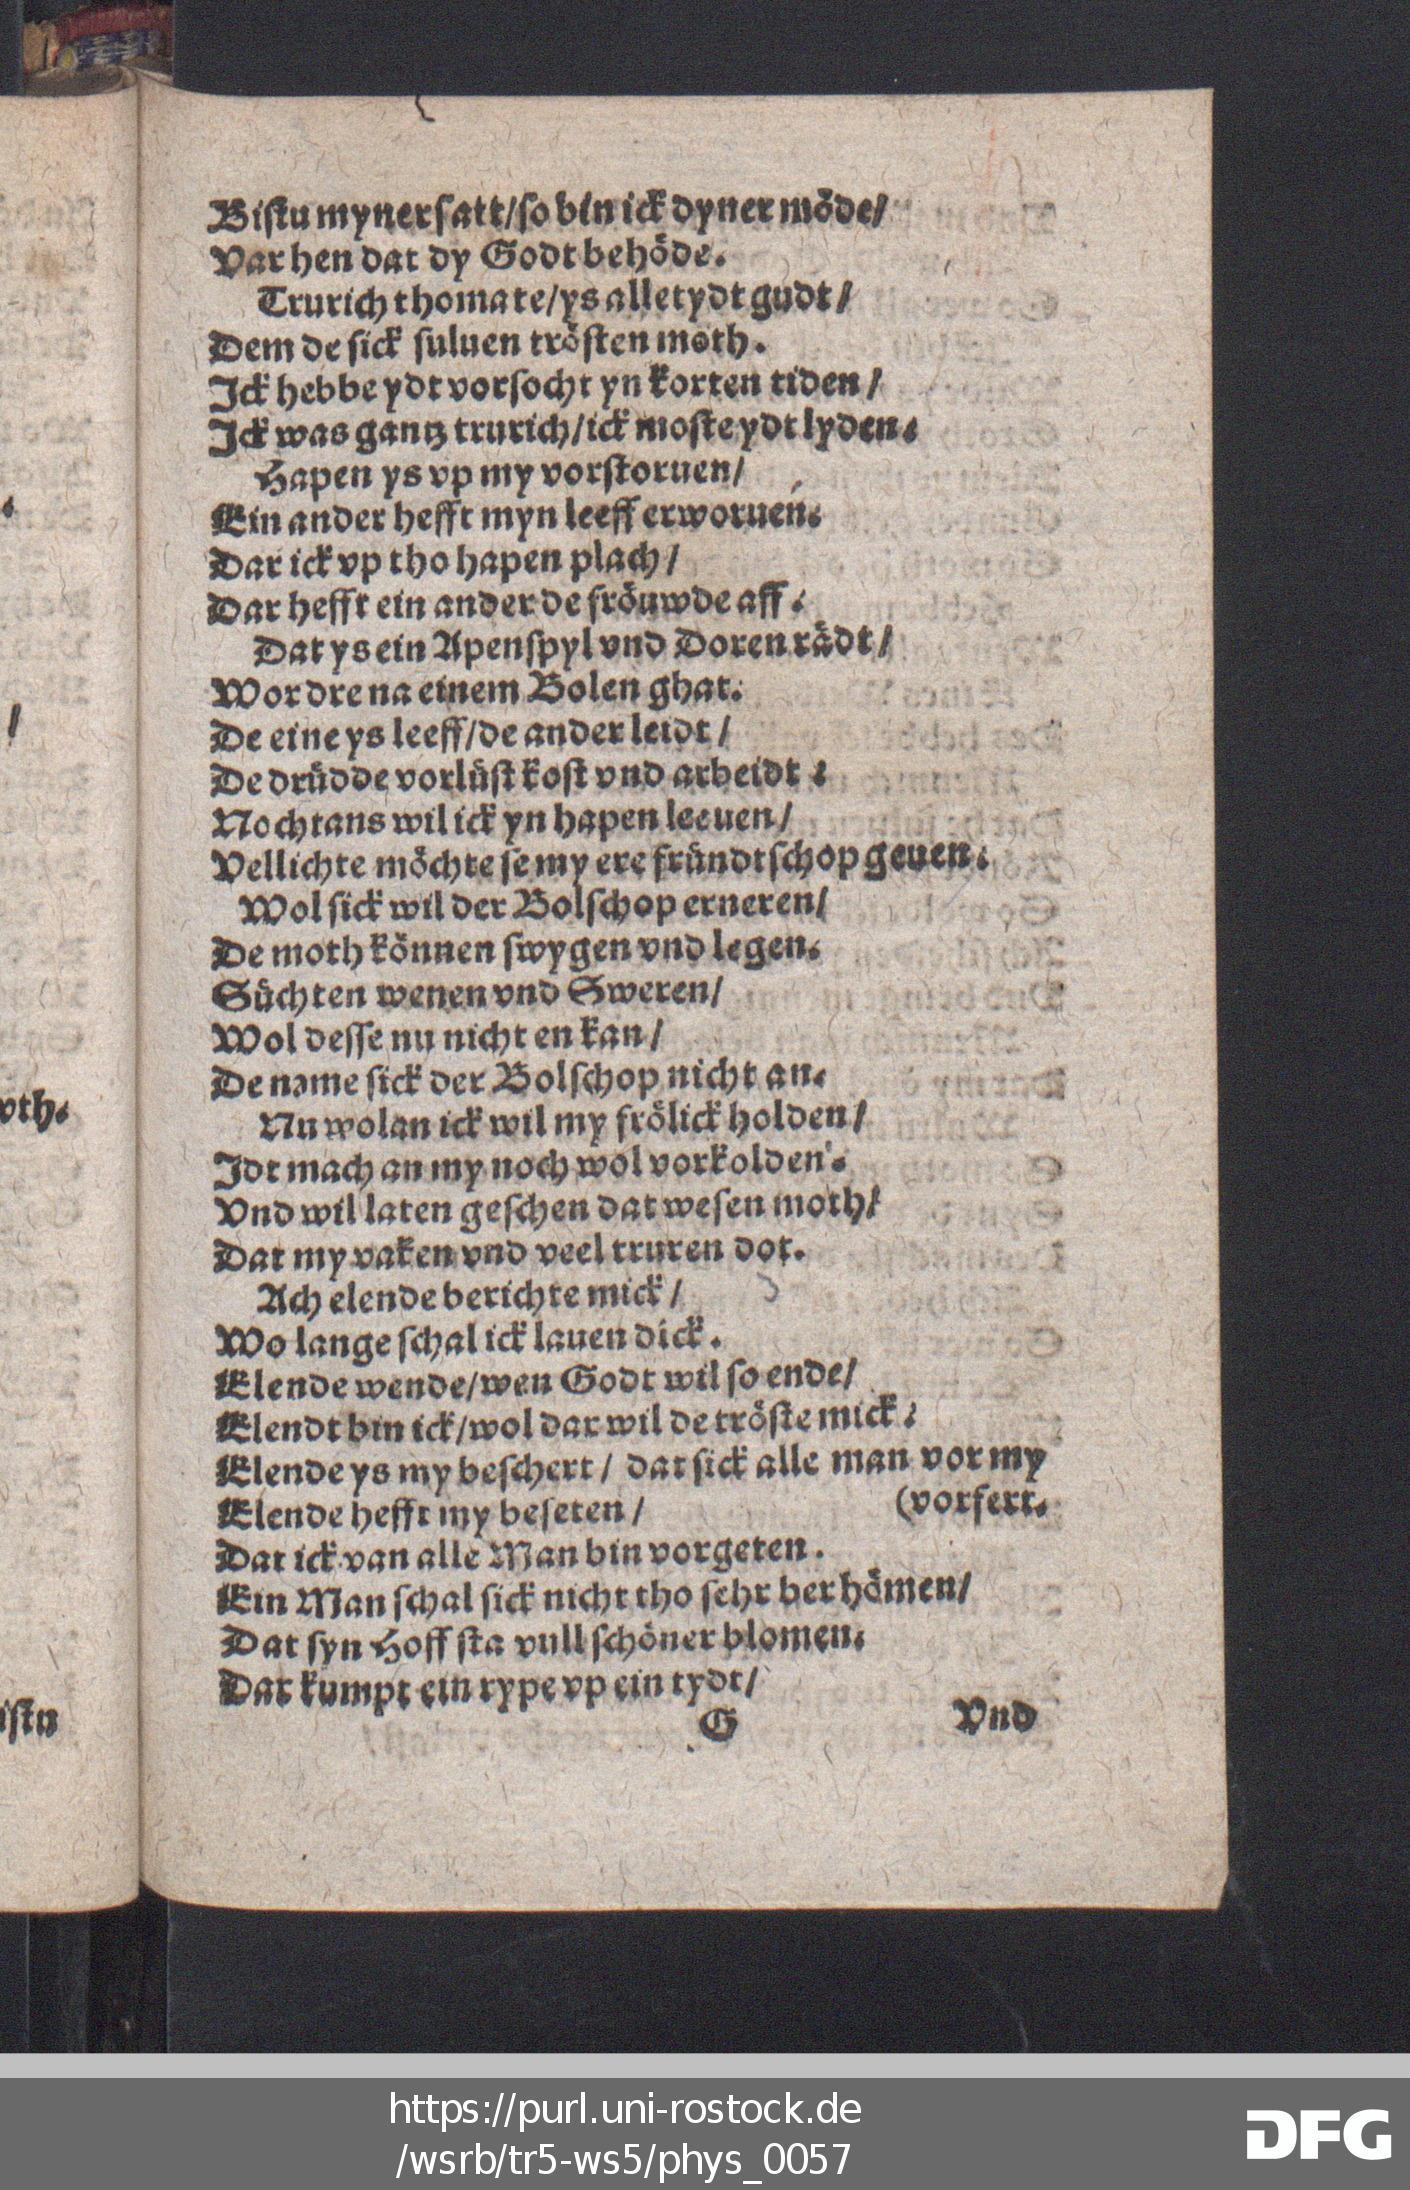 Bistu myner satt/ so bin ick dyner möde/
Var hen dat dy Godt behöde.
Trurich tho mate/ ys alletydt gudt/
Dem de sick suluen trösten moth.
Ick hebbe ydt vorsocht yn korten tiden/
Ick was gantz trurich/ ick moste ydt lyden.
Hapen ys vp my vorstoruen/
Ein ander hefft myn leeff erworuen.
Dar ick vp tho hapen plach/
Dar hefft ein ander de fröuwde aff.
Dat ys ein Apenspyl vnd Doren rädt/
Wor dre na einem Bolen ghat.
De eine ys leeff/ de ander leidt/
De drüdde vorlüst kost vnd arbeidt.
Nochtans wil ick yn hapen leeuen/
Vellichte möchte se my ere fründtschop geuen.
Wol sick wil der Bolschop erneren/
De moth können swygen vnd legen.
Süchten wenen vnd Sweren/
Wol desse nu nicht en kan/
De neme sick der Bolschop nicht an.
Nu wolan ick wil my frölick holden/
Idt mach an my noch wol vorkolden.
Vnd wil laten geschen dat wesen moth/
Dat my vaken vnd veel truren dot.
Ach elende berichte mick/
Wo lange schal ick lauen dick.
Elende wende/ wen Godt wil so ende/
Elendt bin ick/ wol dar wil de tröste mick.
Elende ys my beschert/ dat sick alle man vor my
Elende hefft my beseten/ (vorfert.
Dat ick van alle Man bin vorgeten.
Ein Man schal sick nicht tho sehr berhömen/
Dat syn Hoff sta vull schöner blomen.
Dar kumpt ein rype vp ein tydt/
G Vnd
vth.
istu
https://purl.uni-rostock.de
/wsrb/tr5-ws5/phys_0057
DFG